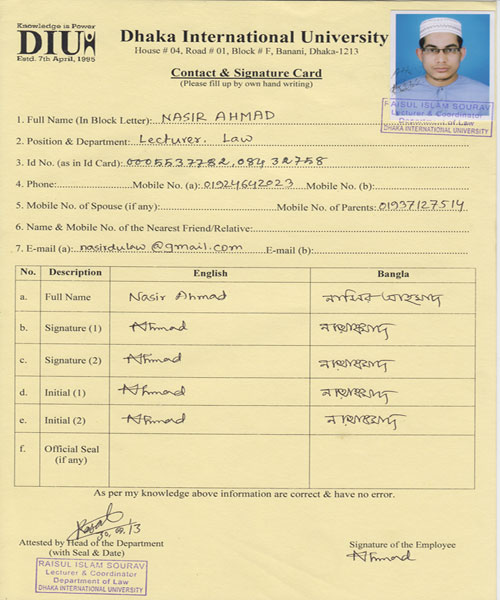 Knowledge is Power
DIU
Estd. 7th April, 1995
Dhaka International University
House # 04, Road # 01, Block # F, Banani, Dhaka-1213
Contact & Signature Card
(Please fill up by own hand writing)
RAISUL ISLAM SOURAV
Lecturer & Coordinator
Department of Law
DHAKA INTERNATIONAL UNIVERSITY
1. Full Name (In Block Letter): NASIR AHMAD
2. Position & Department: Lecturer. Law
3. Id No. (as in Id Card): 0005537782, 084 32758
4. Phone: Mobile No. (a): 01924642023 Mobile No. (b):
5. Mobile No. of Spouse (if any): Mobile No. of Parents: 01937127514
6. Name & Mobile No. of the Nearest Friend/Relative:
7. E-mail (a): nasirdulaw@gmail.com E-mail (b):
No. Description English Bangla
a. Full Name Nasir Ahmad নাসির আহমাদ
b. Signature (1) Ahmad
c. Signature (2) Ahmad
d. Initial (1) Ahmad
e. Initial (2) Ahmad
f. Official Seal
(if any)
As per my knowledge above information are correct & have no error.
Attested by Head of the Department
(with Seal & Date)
Signature of the Employee
Ahmad
RAISUL ISLAM SOURAV
Lecturer & Coordinator
Department of Law
DHAKA INTERNATIONAL UNIVERSITY